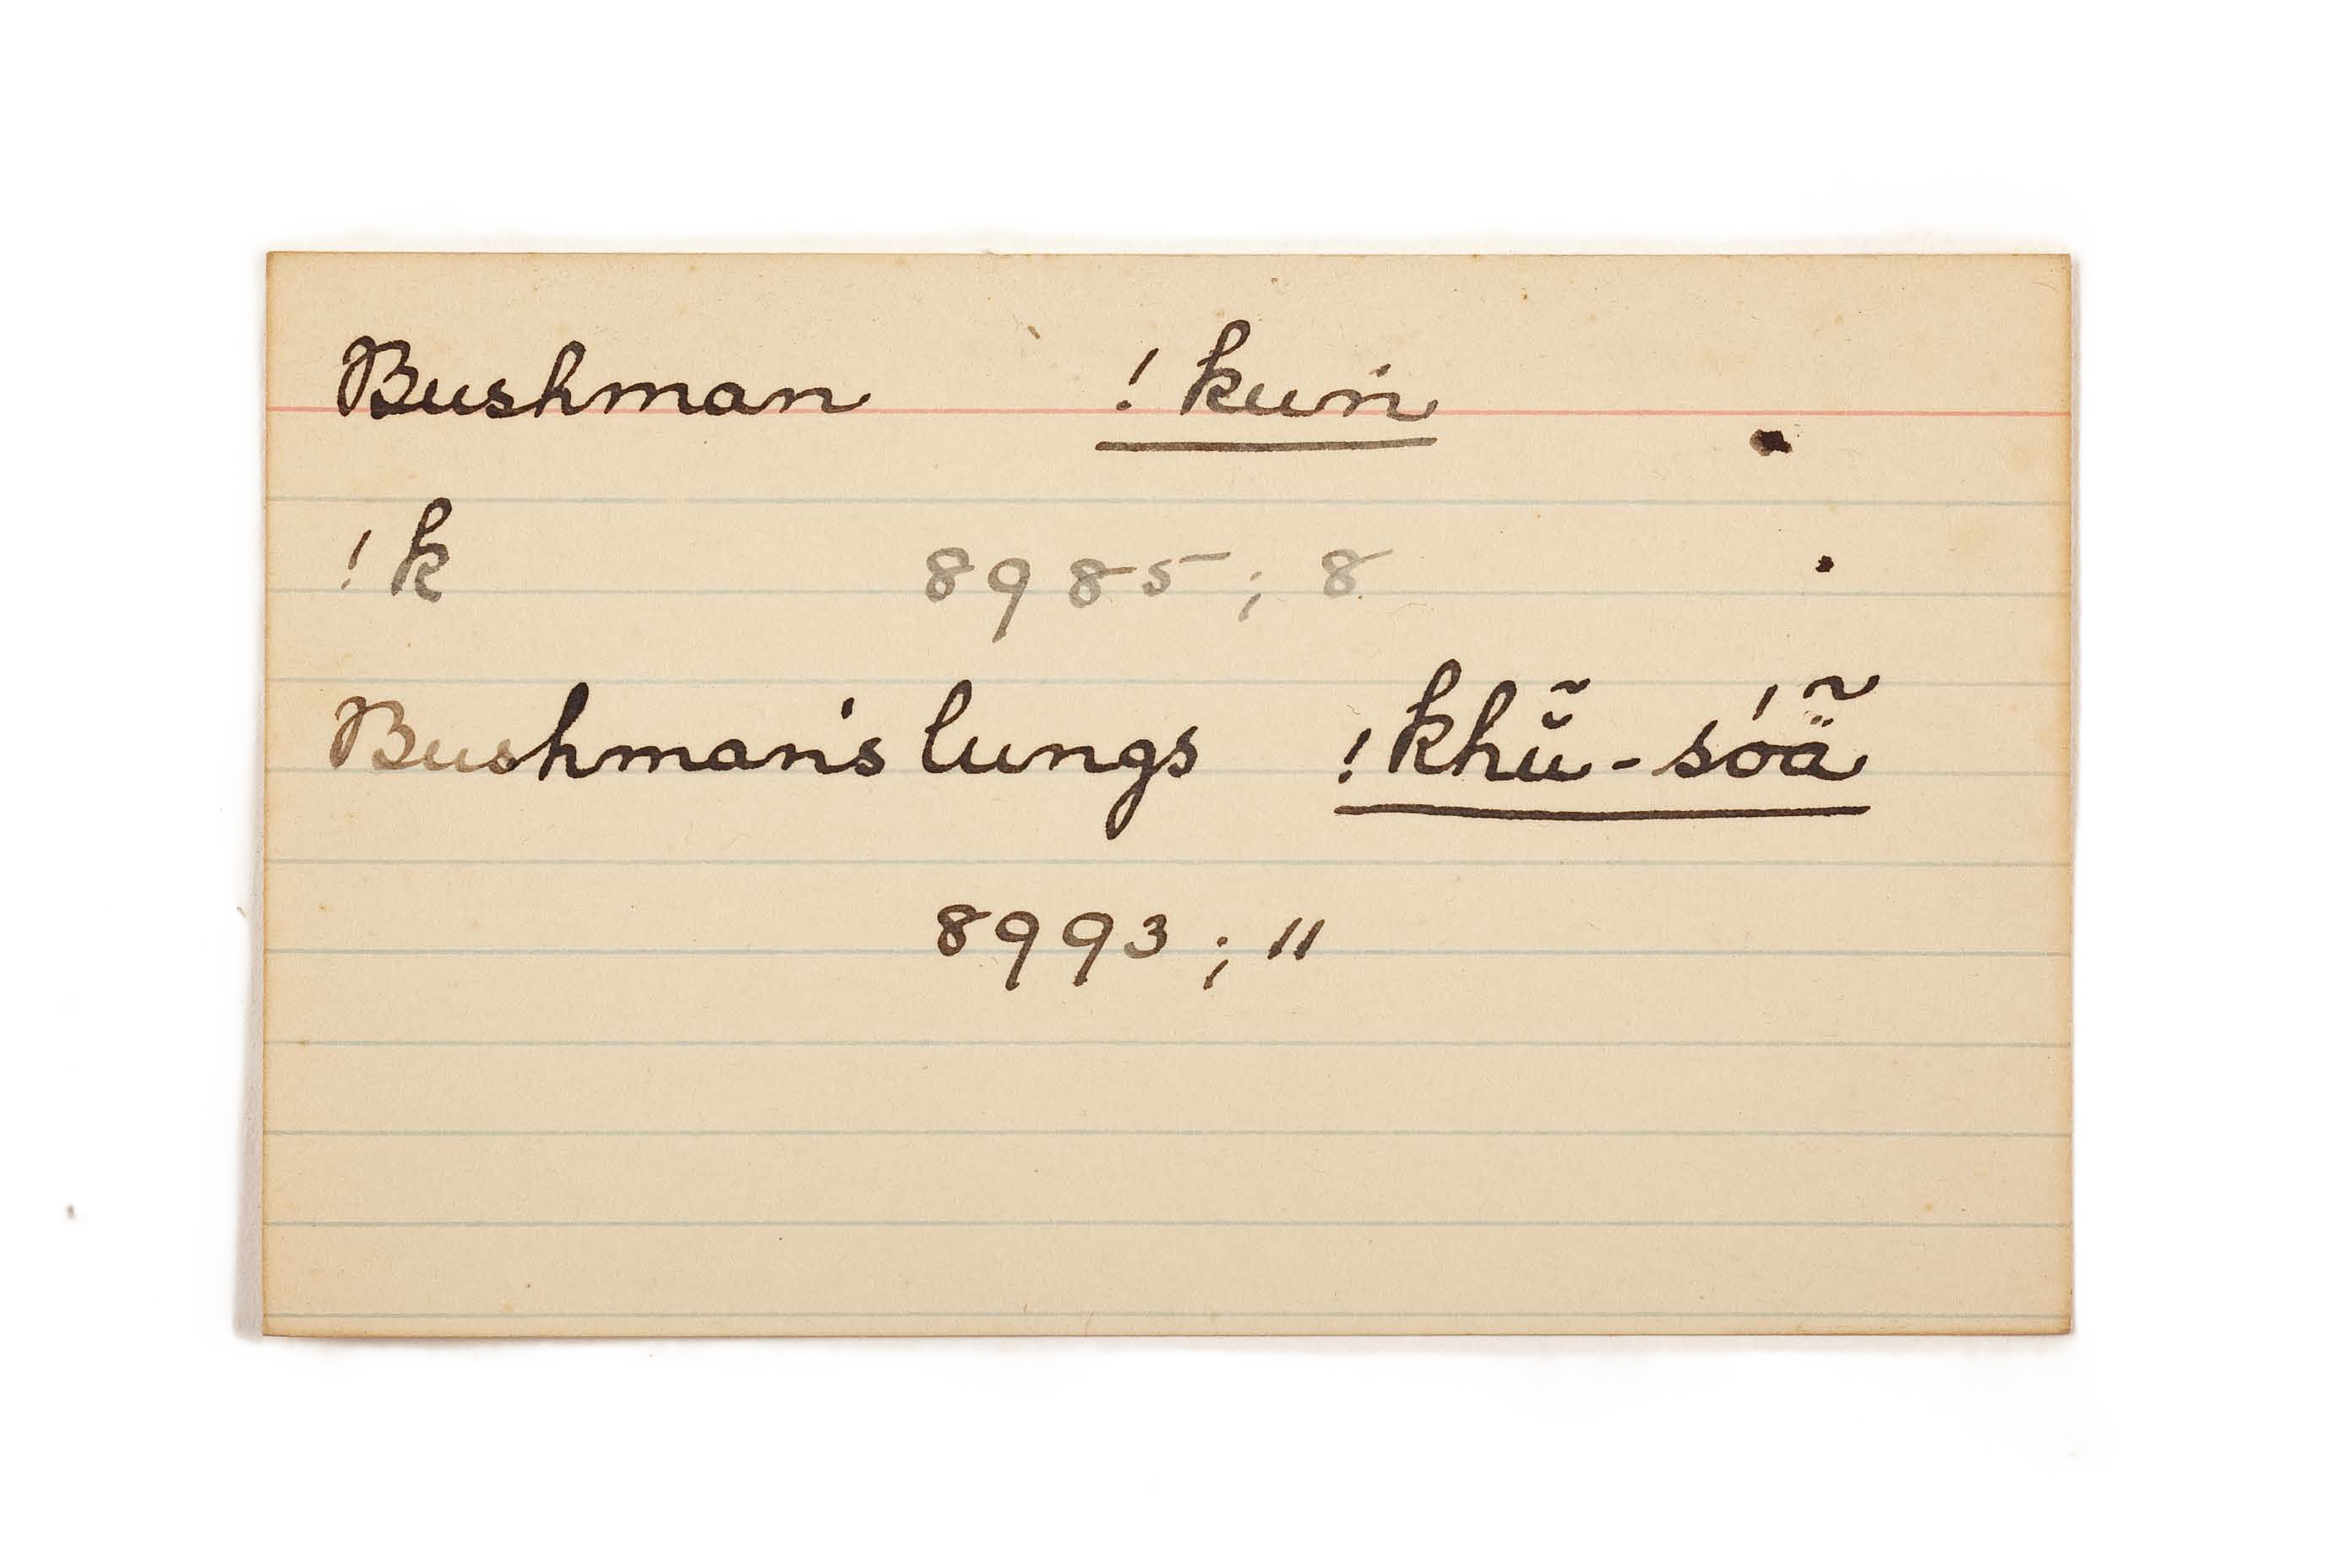 Bushman !kuṅ
!k 8985; 8
Bushman's lungs !khŭ̃-sóä̃
8993; "